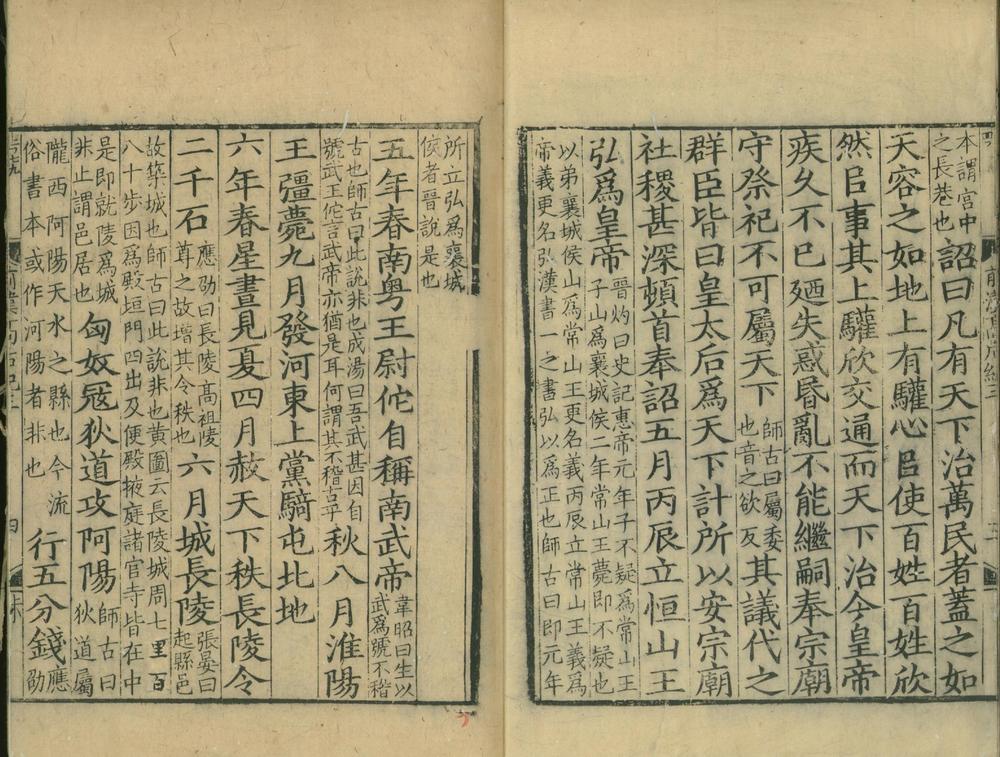 本謂宮中之長巷也詔曰凡有天下治萬民者蓋之如
天容之如地上有驩心㠯使百姓百姓欣
然㠯事其上驩欣交通而天下治今皇帝
疾久不已廼失惑昬亂不能繼嗣奉宗廟
守祭祀不可屬天下師古曰屬委也音之欲反其議代之
群臣皆曰皇太后爲天下計所以安宗廟
社稷甚深頓首奉詔五月丙辰立恒山王
弘爲皇帝晉灼曰史記惠帝元年子不疑爲常山王子山爲襄城侯二年常山王薨即不疑也
以弟襄城侯山爲常山王更名義丙辰立常山王義爲帝義更名弘漢書一之書弘以爲正也師古曰即元年
所立弘爲襄城侯者晉說是也
五年春南粤王尉佗自稱南武帝韋昭曰生以武爲號不稽
古也師古曰此說非也成湯曰吾武甚因自號武王佗言武帝亦猶是耳何謂其不稽古乎秋八月淮陽
王彊薨九月發河東上黨騎屯北地
六年春星晝見夏四月赦天下秩長陵令
二千石應劭曰長陵高祖陵尊之故增其令秩也六月城長陵張晏曰起縣邑
故築城也師古曰此說非也黄圖云長陵城周七里百八十步因爲殿垣門四出及便殿掖庭諸官寺皆在中
是即就陵爲城非止謂邑居也匈奴寇狄道攻阿陽師古曰狄道屬
隴西阿陽天水之縣也今流俗書本或作河陽者非也行五分錢應劭
四